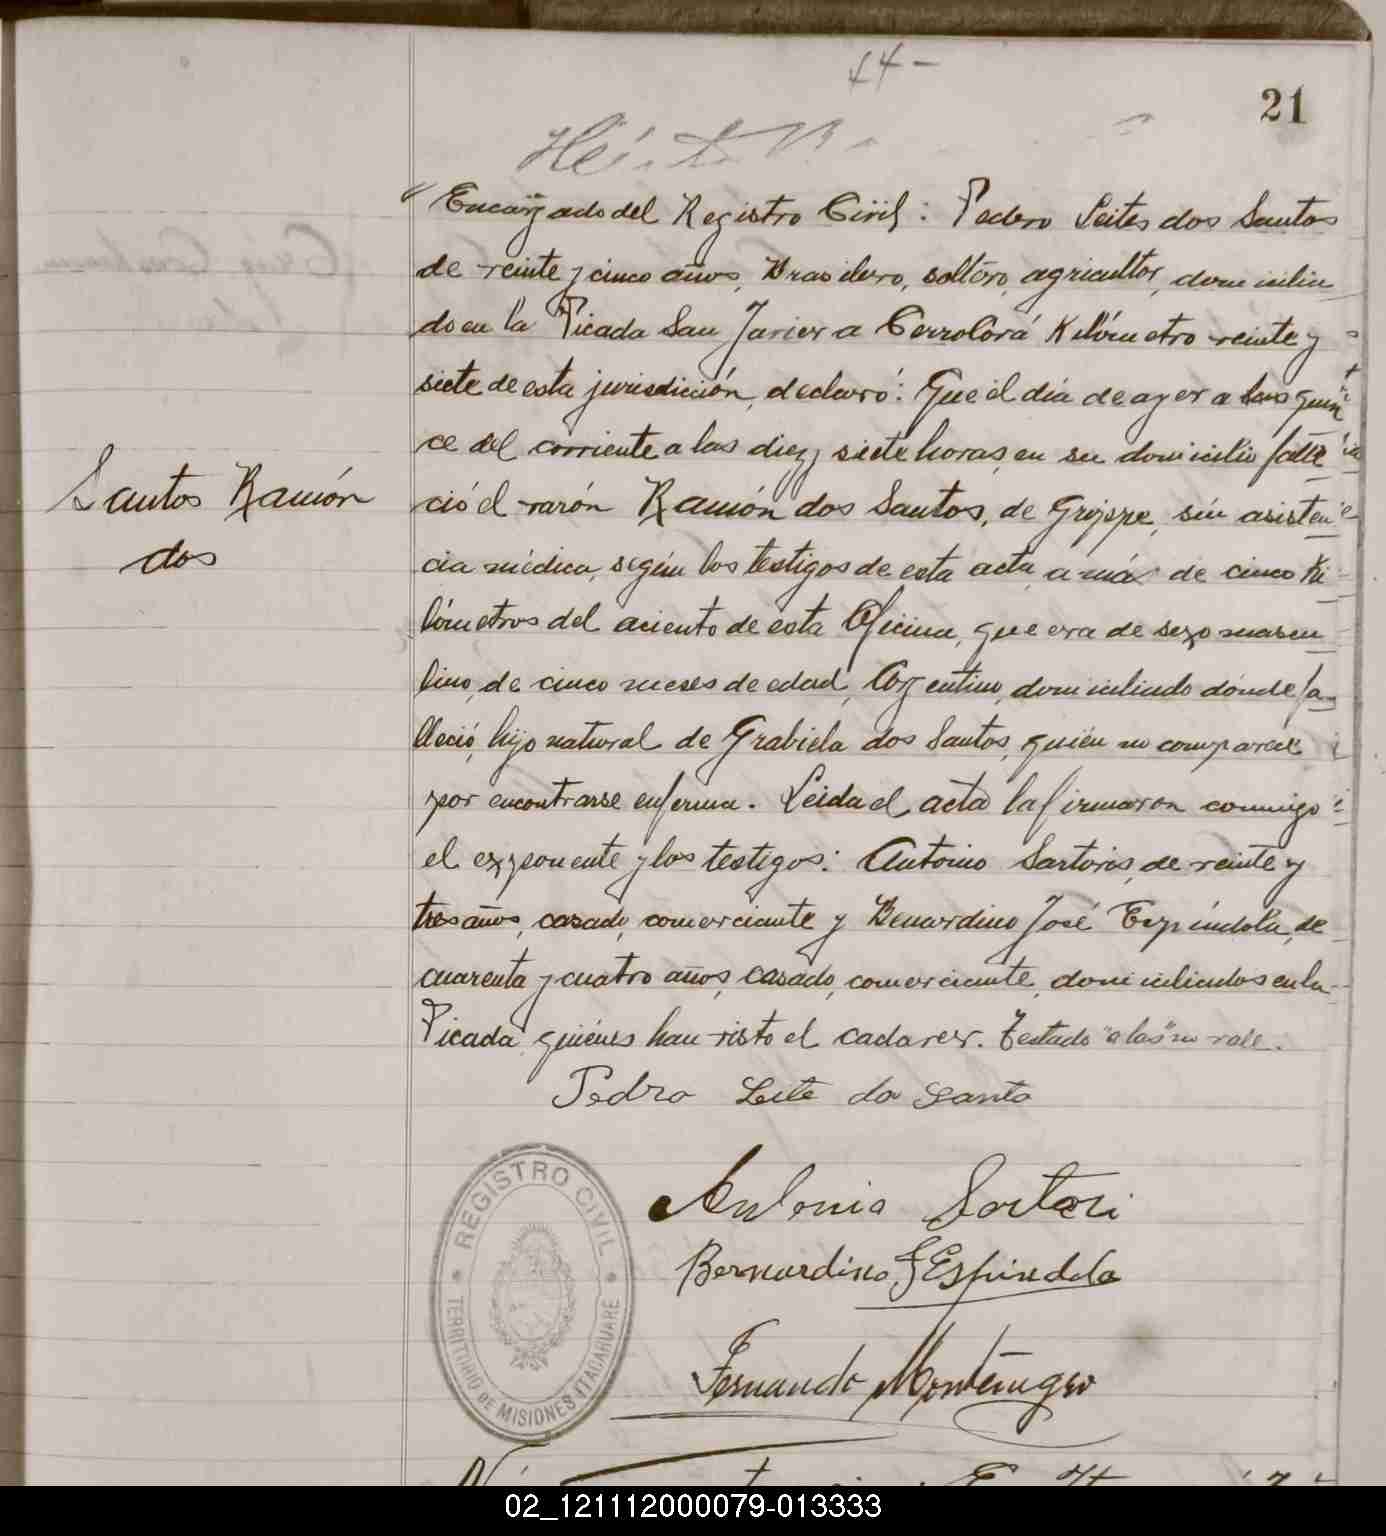 44-
21
"Encargado del Registro Civil: Pedro Leites dos Santos
de veinte y cinco años, Brasilero, soltero, agricultor, domicilia
do en la Picada San Javier a Cerro Corá Kilómetro veinte y
siete de esta jurisdicción, declaró: Que el día de ayer a las quin
ce del corriente a las diez y siete horas, en su domicilio falle
Santos Ramón
dos
ció el varón Ramón dos Santos, de Grippe, sin asisten
cia médica, según los testigos de esta acta, a más de cinco Ki
lómetros del aciento de esta Oficina, que era de sexo mascu
lino, de cinco meses de edad, Argentino, domiciliado dónde fa
lleció, hijo natural de Grabiela dos Santos, quién no comparece
por encontrarse enferma. Leida el acta la firmaron conmigo
el exponente y los testigos: Antonio Sartoris, de veinte y
tres años, casado, comerciante y Benardino José Espíndola, de
cuarenta y cuatro años, casado, comerciante, domiciliados en la
Picada, quiénes han visto el cadaver. Testado "a las" no vale.
Pedro Leite do Santo
Antonio Sartori
Bernardino J Espindola
Fernando Montenegro
REGISTRO CIVIL
TERRITORIO DE MISIONES ITACARUARE
02_121112000079-013333